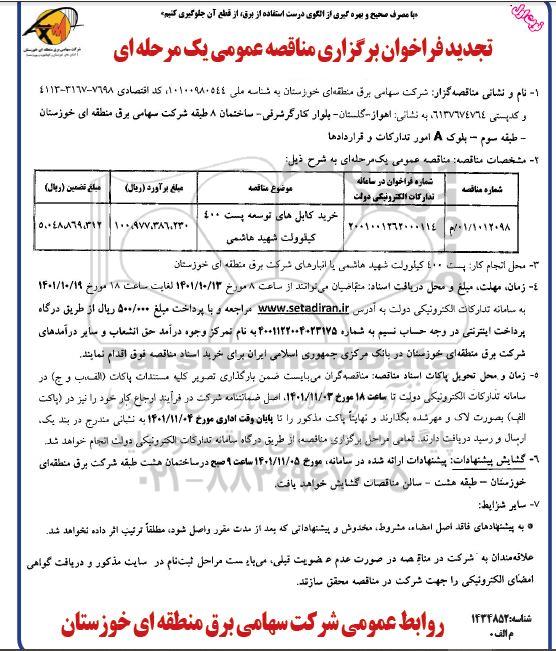 «با مصرف صحیح و بهره گیری از الگوی درست استفاده از برق، از قطع آن جلوگیری کنیم»
نوبت اول
شرکت سهامی برق منطقه ای خوزستان
تجدید فراخوان برگزاری مناقصه عمومی یک مرحله ای
۱- نام و نشانی مناقصه‌گزار: شرکت سهامی برق منطقه‌ای خوزستان به شناسه ملی ۱۰۱۰۰۹۸۰۵۴۴، کد اقتصادی ۷۶۹۸-۳۱۶۷-۴۱۱۳
و کدپستی ۶۱۳۷۶۷۴۷۶۴، به نشانی: اهواز-گلستان- بلوار کارگرشرقی- ساختمان ۸ طبقه شرکت سهامی برق منطقه ای خوزستان
- طبقه سوم – بلوک A امور تدارکات و قراردادها
۲- مشخصات مناقصه: مناقصه عمومی یک‌مرحله‌ای به شرح ذیل:
شماره مناقصه | شماره فراخوان در سامانه تدارکات الکترونیکی دولت | موضوع مناقصه | مبلغ برآورد (ریال) | مبلغ تضمین (ریال)
۰۱/۱۰۱۲۰۹۸/م | ۲۰۰۱۰۰۱۲۶۲۰۰۰۱۱۴ | خرید کابل های توسعه پست ۴۰۰ کیلوولت شهید هاشمی | ۱۰۰,۹۷۷,۳۸۶,۲۳۰ | ۵,۰۴۸,۸۶۹,۳۱۲
۳- محل انجام کار: پست ۴۰۰ کیلوولت شهید هاشمی یا انبارهای شرکت برق منطقه ای خوزستان
۴- زمان، مهلت، مبلغ و محل دریافت اسناد: متقاضیان می‌توانند از ساعت ۸ مورخ ۱۴۰۱/۱۰/۱۳ لغایت ساعت ۱۸ مورخ ۱۴۰۱/۱۰/۱۹
به سامانه تدارکات الکترونیکی دولت به آدرس www.setadiran.ir مراجعه و با پرداخت مبلغ ۵۰۰/۰۰۰ ریال از طریق درگاه
پرداخت اینترنتی در وجه حساب نسیم به شماره ۴۰۰۱۱۲۲۰۰۴۰۲۳۱۷۵ به نام تمرکز وجوه درآمد حق انشعاب و سایر درآمدهای
شرکت برق منطقه‌ای خوزستان در بانک مرکزی جمهوری اسلامی ایران برای خرید اسناد مناقصه فوق اقدام نمایند.
۵- زمان و محل تحویل پاکات اسناد مناقصه: مناقصه‌گران می‌بایست ضمن بارگذاری تصویر کلیه مستندات پاکات (الف،ب و ج) در
سامانه تدارکات الکترونیکی دولت تا ساعت ۱۸ مورخ ۱۴۰۱/۱۱/۰۳، اصل ضمانتنامه شرکت در فرآیند ارجاع کار خود را نیز در (پاکت
الف) بصورت لاک و مهرشده بگذارند و نهایتاً پاکت مذکور را تا پایان وقت اداری مورخ ۱۴۰۱/۱۱/۰۴ به نشانی مندرج در بند یک،
ارسال و رسید دریافت دارند. تمامی مراحل برگزاری مناقصه، از طریق درگاه سامانه تدارکات الکترونیکی دولت انجام خواهد شد.
۶- گشایش پیشنهادات: پیشنهادات ارائه شده در سامانه، مورخ ۱۴۰۱/۱۱/۰۵ ساعت ۹ صبح درساختمان هشت طبقه شرکت برق منطقه‌ای
خوزستان – طبقه هشت – سالن مناقصات گشایش خواهد یافت.
۷- سایر شرایط:
* به پیشنهادهای فاقد اصل امضاء، مشروط، مخدوش و پیشنهاداتی که بعد از مدت مقرر واصل شود، مطلقاً ترتیب اثر داده نخواهد شد.
علاقه‌مندان به شرکت در مناقصه در صورت عدم عضویت قبلی، می‌بایست مراحل ثبت‌نام در سایت مذکور و دریافت گواهی
امضای الکترونیکی را جهت شرکت در مناقصه محقق سازند.
شناسه: ۱۴۳۴۸۵۲
م الف:
روابط عمومی شرکت سهامی برق منطقه ای خوزستان